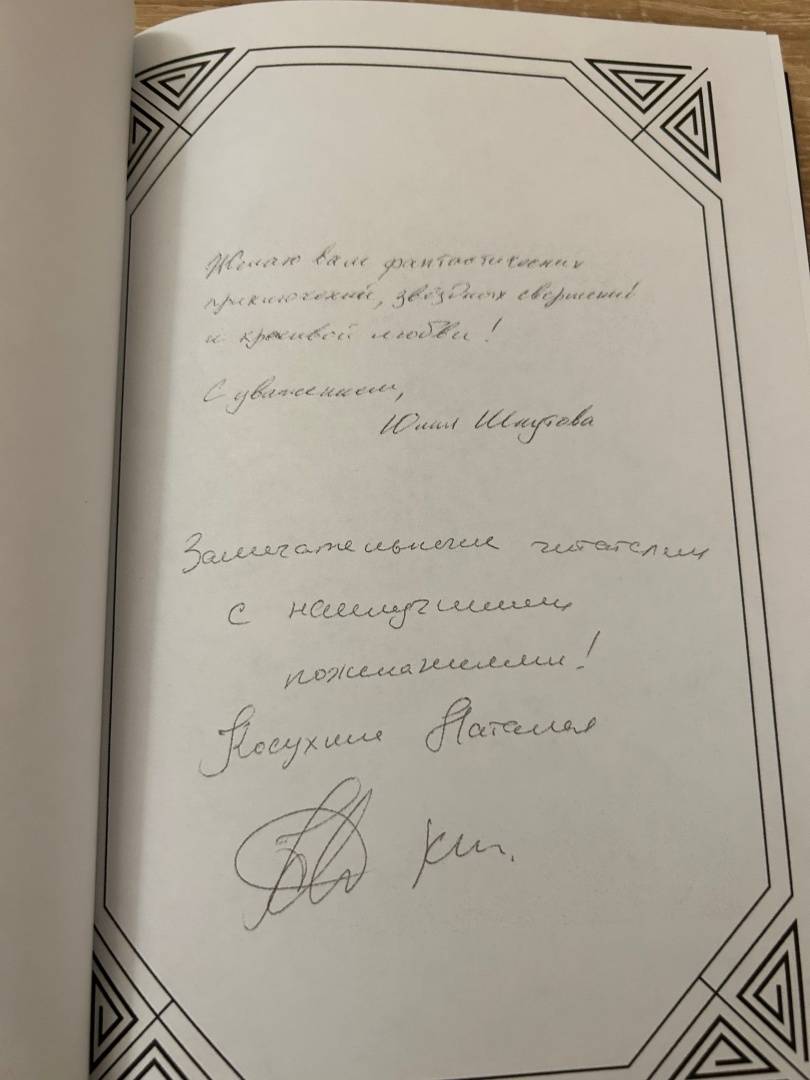 Желаю вам фантастических
приключений, звёздных свершений
и красивой любви!
С уважением,
Юлия Шкутова
Замечательным читателям
с наилучшими
пожеланиями!
Косухина Наталья